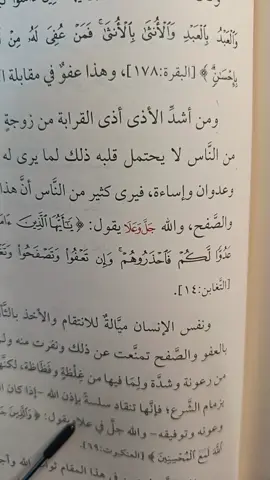 وَالْعَبْدُ بِالْعَبْدِ وَالْأُنثَىٰ بِالْأُنثَىٰ ۚ فَمَنْ عُفِيَ لَهُ مِنْ
بِإِحْسَٰنٍ ﴾ [البقرة:١٧٨]، وهذا عفوٌ في مقابلة
ومن أشدِّ الأذى أذى القرابة من زوجةٍ
من النَّاس لا يحتمل قلبه ذلك لما يرى له
وعدوان وإساءة، فيرى كثير من النَّاس أنَّ هذا
والصَّفح، والله جَلَّ وَعَلَا يقول: ﴿ يَٰٓأَيُّهَا ٱلَّذِينَ
عَدُوًّا لَّكُمْ فَٱحْذَرُوهُمْ ۚ وَإِن تَعْفُوا۟ وَتَصْفَحُوا۟
[التغابن:١٤].
ونفس الإنسان ميَّالةٌ للانتقام والأخذ
بالعفو والصَّفح تمنَّعت عن ذلك ونفرت منه
من رعونة وشدَّة ولِمَا فيها من غِلْظَةٍ وفَظَاظة،
بزمام الشَّرع؛ فإنَّها تنقاد سلسةً بإذن الله -إذا كان
وعونه وتوفيقه- والله جلَّ في علاه يقول:
ٱللَّهَ لَمَعَ ٱلْمُحْسِنِينَ ﴾ [العنكبوت:٦٩].
في هذا المقام